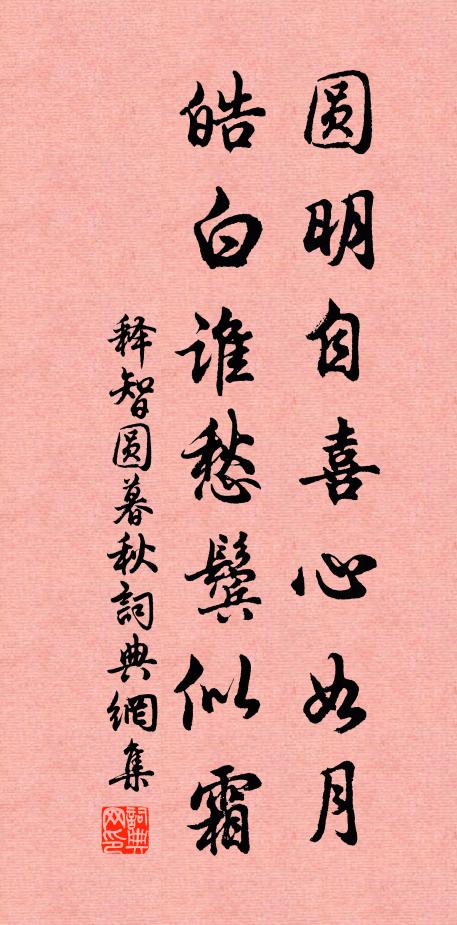 圆明自喜心如月
皓白谁愁鬓似霜
释智圆暮秋詞典網集
詞典网印